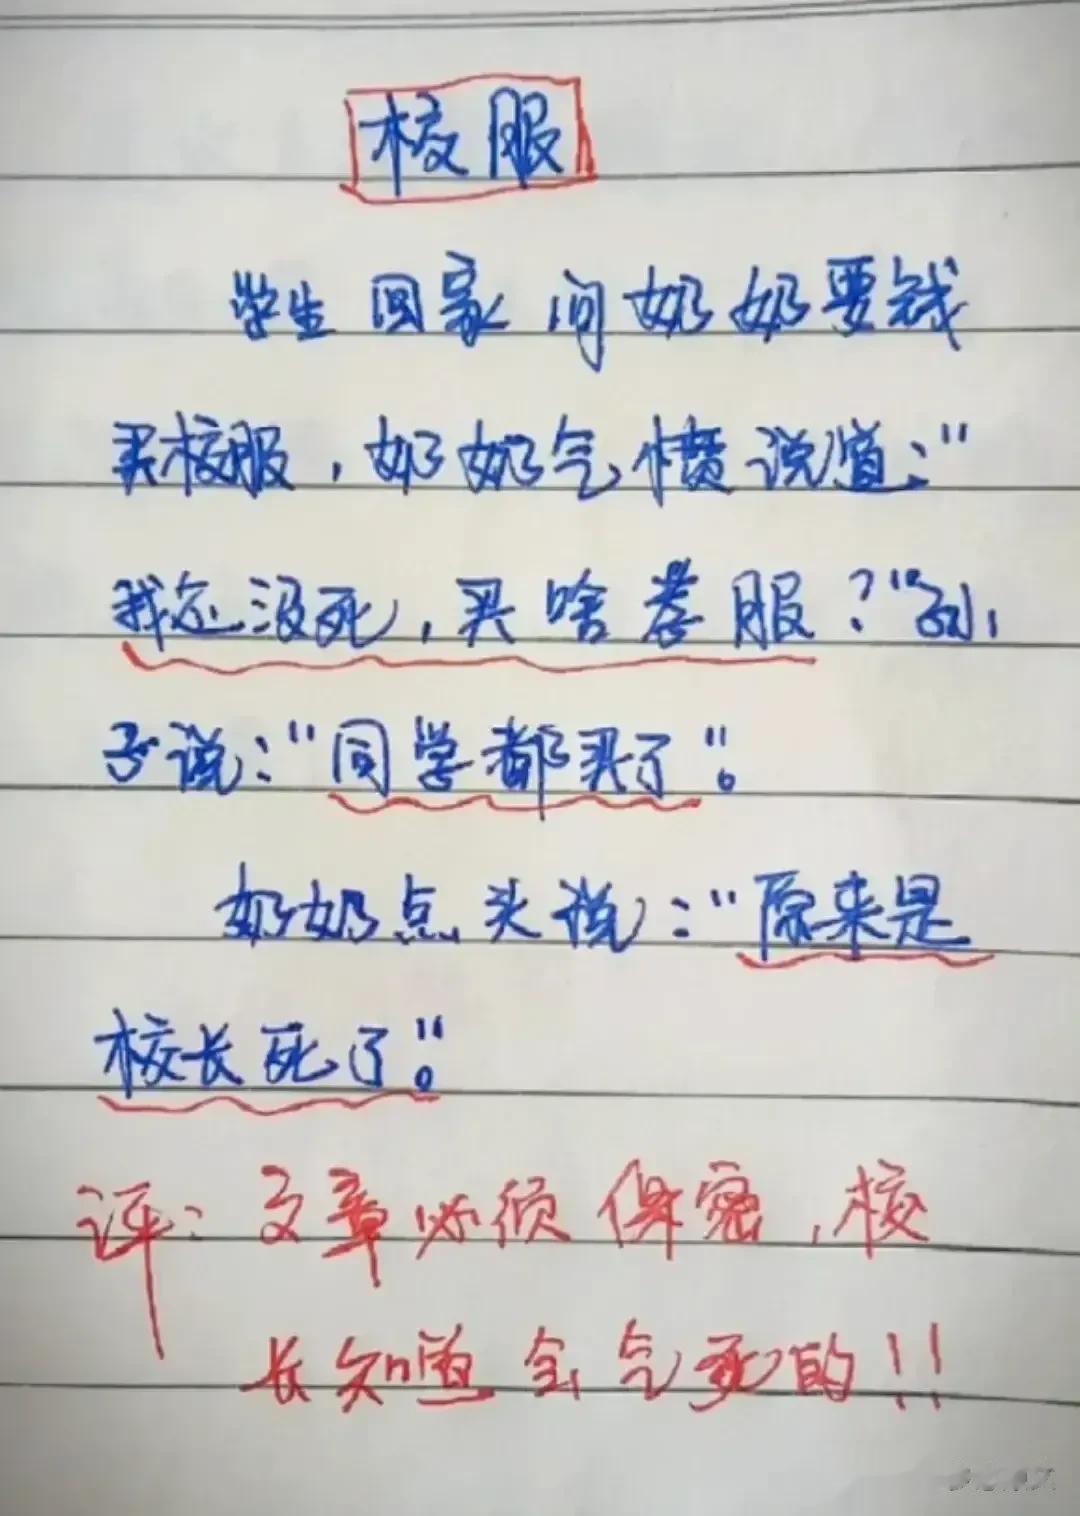 校服
学生回家问奶奶要钱
买校服，奶奶气愤说道：“
我还没死，买啥孝服？”孙
子说：“同学都买了”。
奶奶点头说：“原来是
校长死了”。
评：文章必须保密，校
长知道会气死的！！